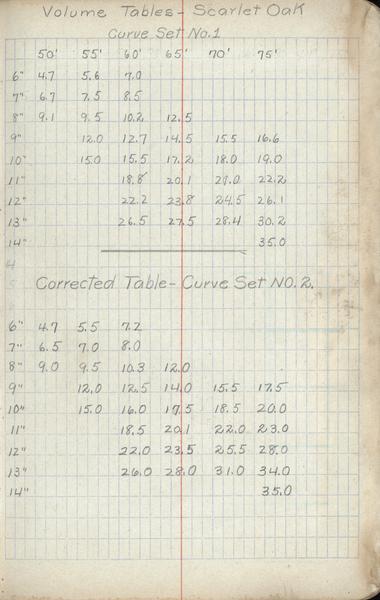 Volume Tables - Scarlet Oak
Curve Set No. 1
50' 55' 60' 65' 70' 75'
6" 4.7 5.6 7.0
7" 6.7 7.5 8.5
8" 9.1 9.5 10.2 12.5
9" 12.0 12.7 14.5 15.5 16.6
10" 15.0 15.5 17.2 18.0 19.0
11" 18.8 20.1 21.0 22.2
12" 22.2 23.8 24.5 26.1
13" 26.5 27.5 28.4 30.2
14" 35.0
Corrected Table - Curve Set NO. 2.
6" 4.7 5.5 7.2
7" 6.5 7.0 8.0
8" 9.0 9.5 10.3 12.0
9" 12.0 12.5 14.0 15.5 17.5
10" 15.0 16.0 17.5 18.5 20.0
11" 18.5 20.1 22.0 23.0
12" 22.0 23.5 25.5 28.0
13" 26.0 28.0 31.0 34.0
14" 35.0